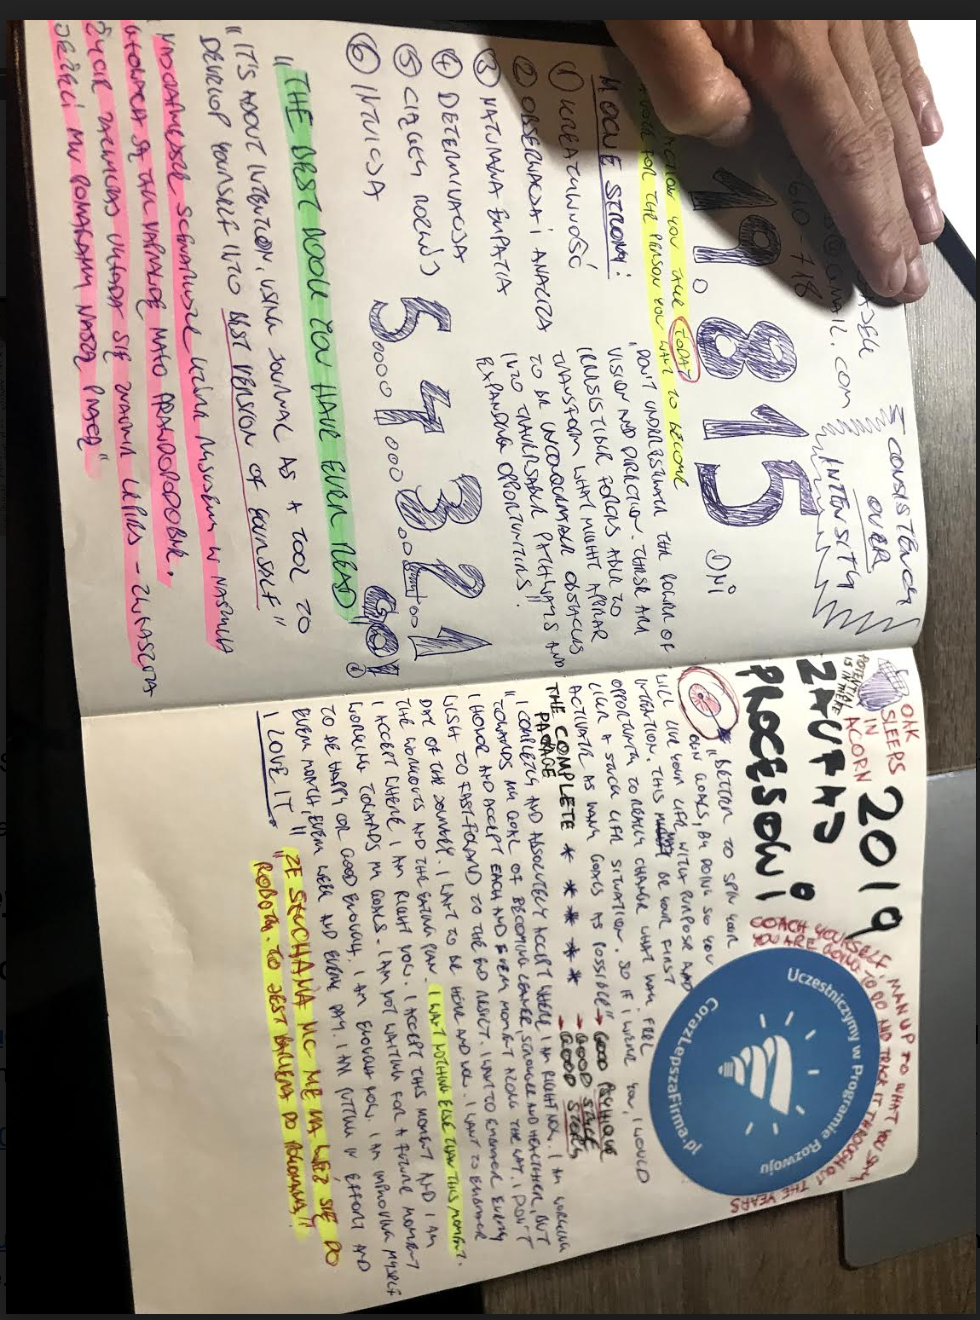 @gmail.com
610-718
CONSISTENCY
OVER
INTENSITY
19.815 DNi
ACTION YOU TAKE TODAY
FOR THE PERSON YOU WANT TO BECOME
MOCNE STRONY:
① KREATYWNOŚĆ
② OBSERWACJA I ANALIZA
③ NATURALNA EMPATIA
④ DETERMINACJA
⑤ CIĄGŁY ROZWÓJ
⑥ INTUICJA
"DON'T UNDERESTIMATE THE POWER OF
VISION AND DIRECTION. THESE ARE
IRRESISTIBLE FORCES ABLE TO
TRANSFORM WHAT MIGHT APPEAR
TO BE UNCONQUERABLE OBSTACLES
INTO TRAVERSABLE PATHWAYS AND
EXPANDING OPPORTUNITIES."
5 4 3 2 1
GO!
"THE BEST BOOK YOU HAVE EVER READ
"IT'S ABOUT INTENTION, USING JOURNAL AS A TOOL TO
DEVELOP YOURSELF INTO BEST VERSION OF YOURSELF"
SCENARIUSZE KTÓRE W NASZYCH
GŁOWACH SĄ TAK NAPRAWDĘ MAŁO PRAWDOPODOBNE.
ŻYCIE ZAZWYCZAJ UKŁADA SIĘ LEPIEJ - ZWŁASZCZA
JEŻELI MU POMAGAMY NASZĄ PRACĄ"
OAK
SLEEPS
IN
ACORN
POTENTIAL
IS IN THERE
2019
ZAUFAJ
PROCESOWI
COACH YOURSELF, MAN UP TO WHAT YOU SAY
YOU ARE GOING TO DO AND TRACK IT THROUGHOUT THE YEARS
Uczestniczymy w Programie Rozwoju
CorazLepszaFirma.pl
"BETTER TO SPEND YOUR
OWN GOALS, BY DOING SO YOU
WILL LIVE YOUR LIFE WITH PURPOSE AND
INTENTION. THIS BE YOUR FIRST
OPPORTUNITY TO REALLY CHANGE WHAT MAY FEEL
LIKE A STUCK LIFE SITUATION. SO IF I WERE YOU, I WOULD
ACTIVATE AS MANY GOALS AS POSSIBLE"
→ GOOD BEHAVIOUR
→ GOOD STATE
→ GOOD STORY
THE COMPLETE * * * * * *
PACKAGE
"I COMPLETELY AND ABSOLUTELY ACCEPT WHERE I AM RIGHT NOW. I AM WORKING
TOWARDS MY GOAL OF BECOMING LEANER, STRONGER AND HEALTHIER, BUT
I HONOR AND ACCEPT EACH AND EVERY MOMENT ALONG THE WAY. I DON'T
WISH TO FAST-FORWARD TO THE END RESULT. I WANT TO EXPERIENCE EVERY
DAY OF THE JOURNEY. I WANT TO BE HERE AND NOW. I WANT TO EXPERIENCE
THE WORKOUTS AND THE EATING PLAN. I WANT NOTHING ELSE THAN THIS MOMENT.
I ACCEPT WHERE I AM RIGHT NOW. I ACCEPT THIS MOMENT AND I AM
WORKING TOWARDS MY GOALS. I AM NOT WAITING FOR A FUTURE MOMENT
TO BE HAPPY OR GOOD ENOUGH. I AM ENOUGH NOW. I AM IMPROVING MYSELF
EVERY MONTH, EVERY WEEK AND EVERY DAY. I AM PUTTING IN EFFORT AND
I LOVE IT"
"ZE STUCHANIA NIC NIE MA WEŹ SIĘ DO
ROBOTY. TO JEST BARIERA DO POKONANIA!"